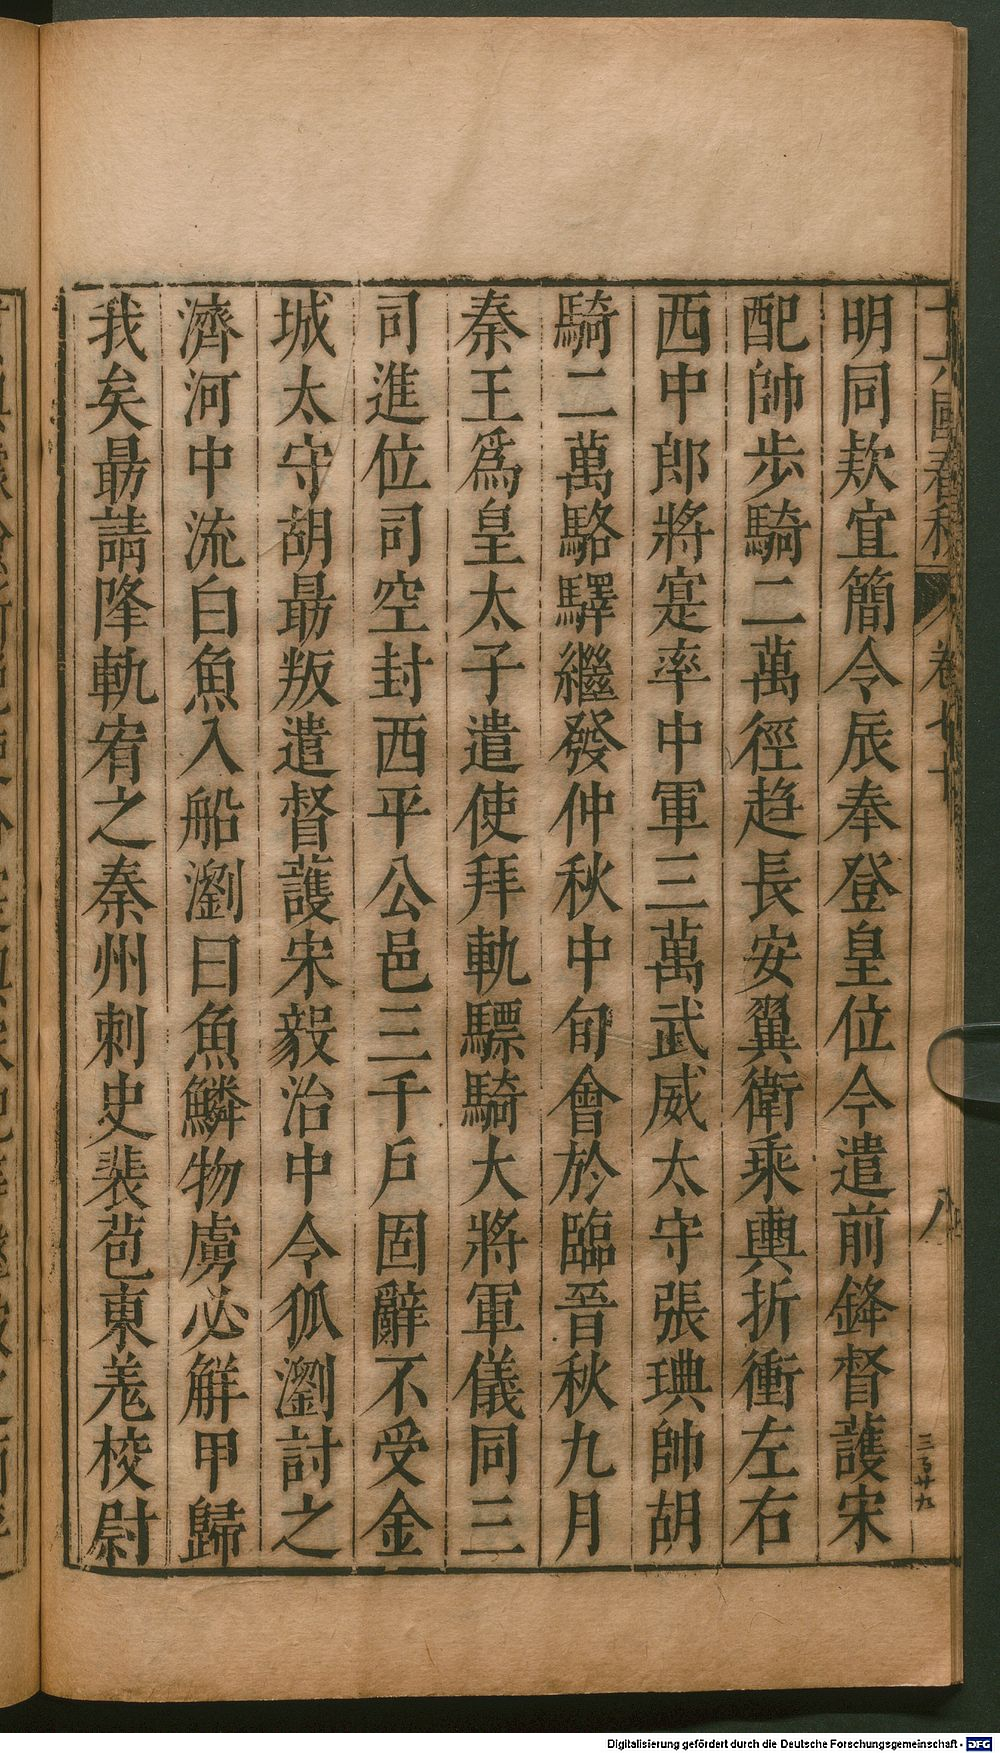 十六國春秋 卷七十 八
三百廿九
明同款宜簡令辰奉登皇位今遣前鋒督護宋
配帥步騎二萬徑趋長安翼衛乘輿折衝左右
西中郎將寔率中軍三萬武威太守張琠帥胡
騎二萬駱驛繼發仲秋中旬會於臨晉秋九月
秦王爲皇太子遣使拜軌驃騎大將軍儀同三
司進位司空封西平公邑三千戶固辭不受金
城太守胡勗叛遣督護宋毅治中令狐瀏討之
濟河中流白魚入船瀏曰魚鱗物虜必解甲歸
我矣勗請降軌宥之秦州刺史裴苞東羌校尉
Digitalisierung gefördert durch die Deutsche Forschungsgemeinschaft - DFG